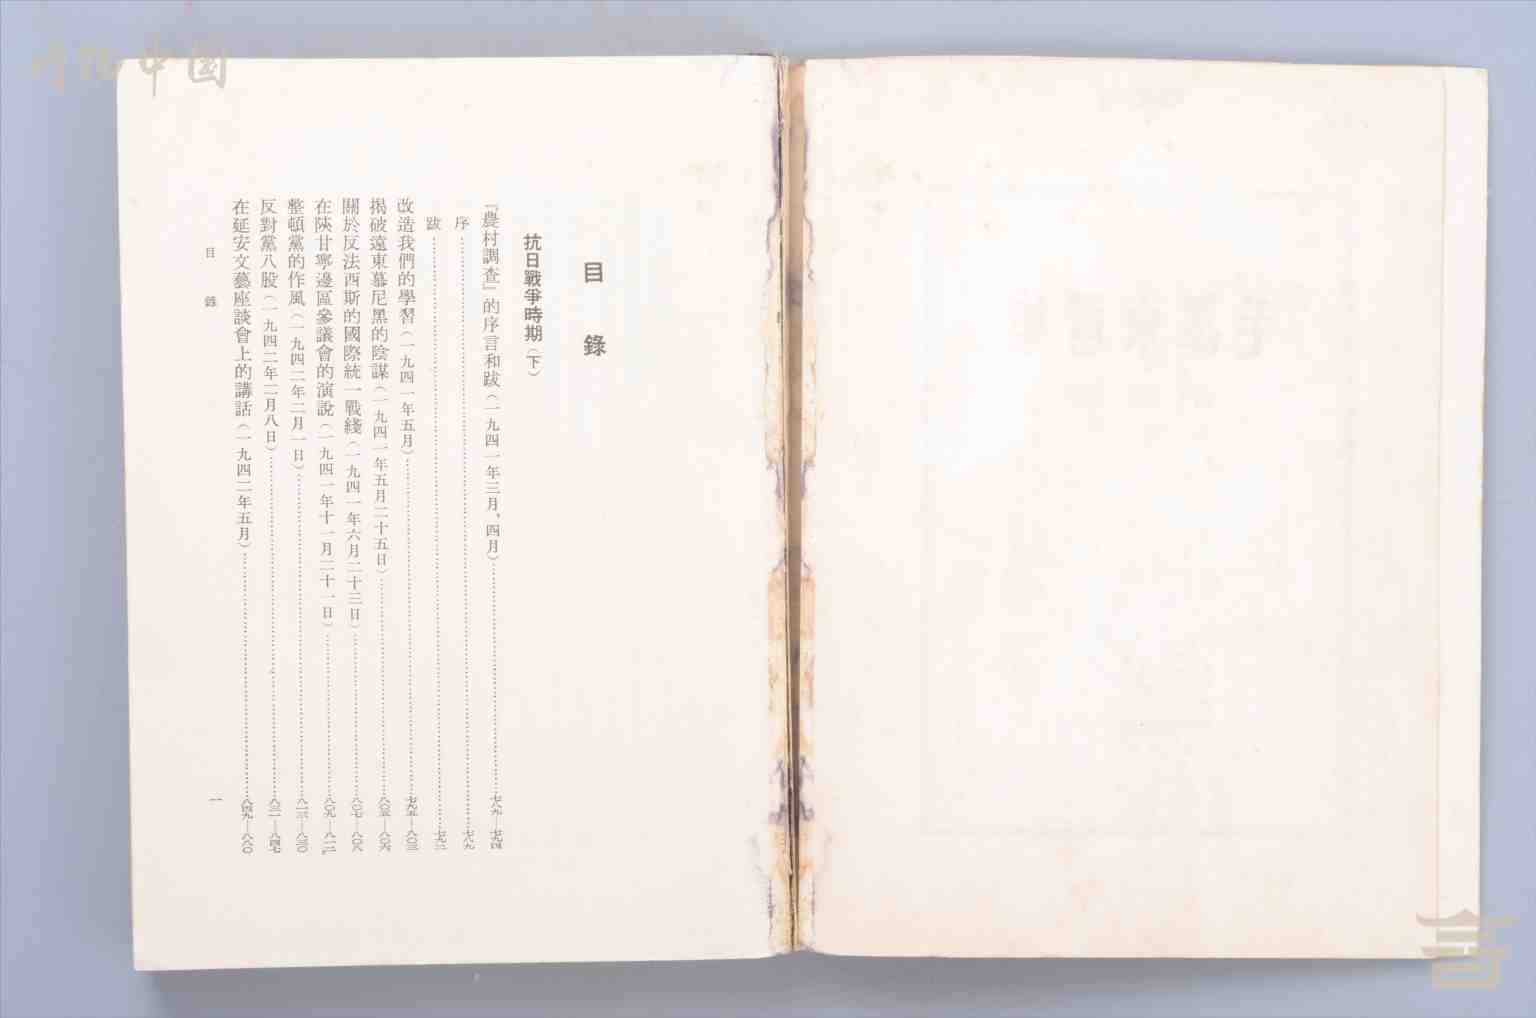 目錄
抗日戰爭時期（下）
『農村調查』的序言和跋（一九四一年三月、四月）……七八九—七九四
序……七八九
跋……七九二
改造我們的學習（一九四一年五月）……七九五—八〇三
揭破遠東慕尼黑的陰謀（一九四一年五月二十五日）……八〇五—八〇六
關於反法西斯的國際統一戰綫（一九四一年六月二十三日）……八〇七—八〇八
在陝甘寧邊區參議會的演說（一九四一年十一月二十一日）……八〇九—八一二
整頓黨的作風（一九四二年二月一日）……八一三—八三〇
反對黨八股（一九四二年二月八日）……八三一—八四七
在延安文藝座談會上的講話（一九四二年五月）……八四九—八八〇
目錄
一
中国